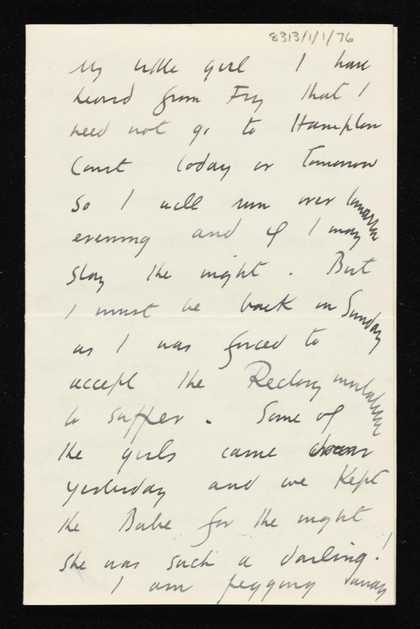 8313/1/1/76
My little girl I have
heard from Fry that I
need not go to Hampton
Court today or Tomorrow
So I will run over tomorrow
evening and if I may
stay the night. But
I must be back on Sunday
as I was forced to
accept the Rectory invitation
to supper. Some of
the girls came down
yesterday and we kept
the Babe for the night
she was such a darling!
I am pegging away